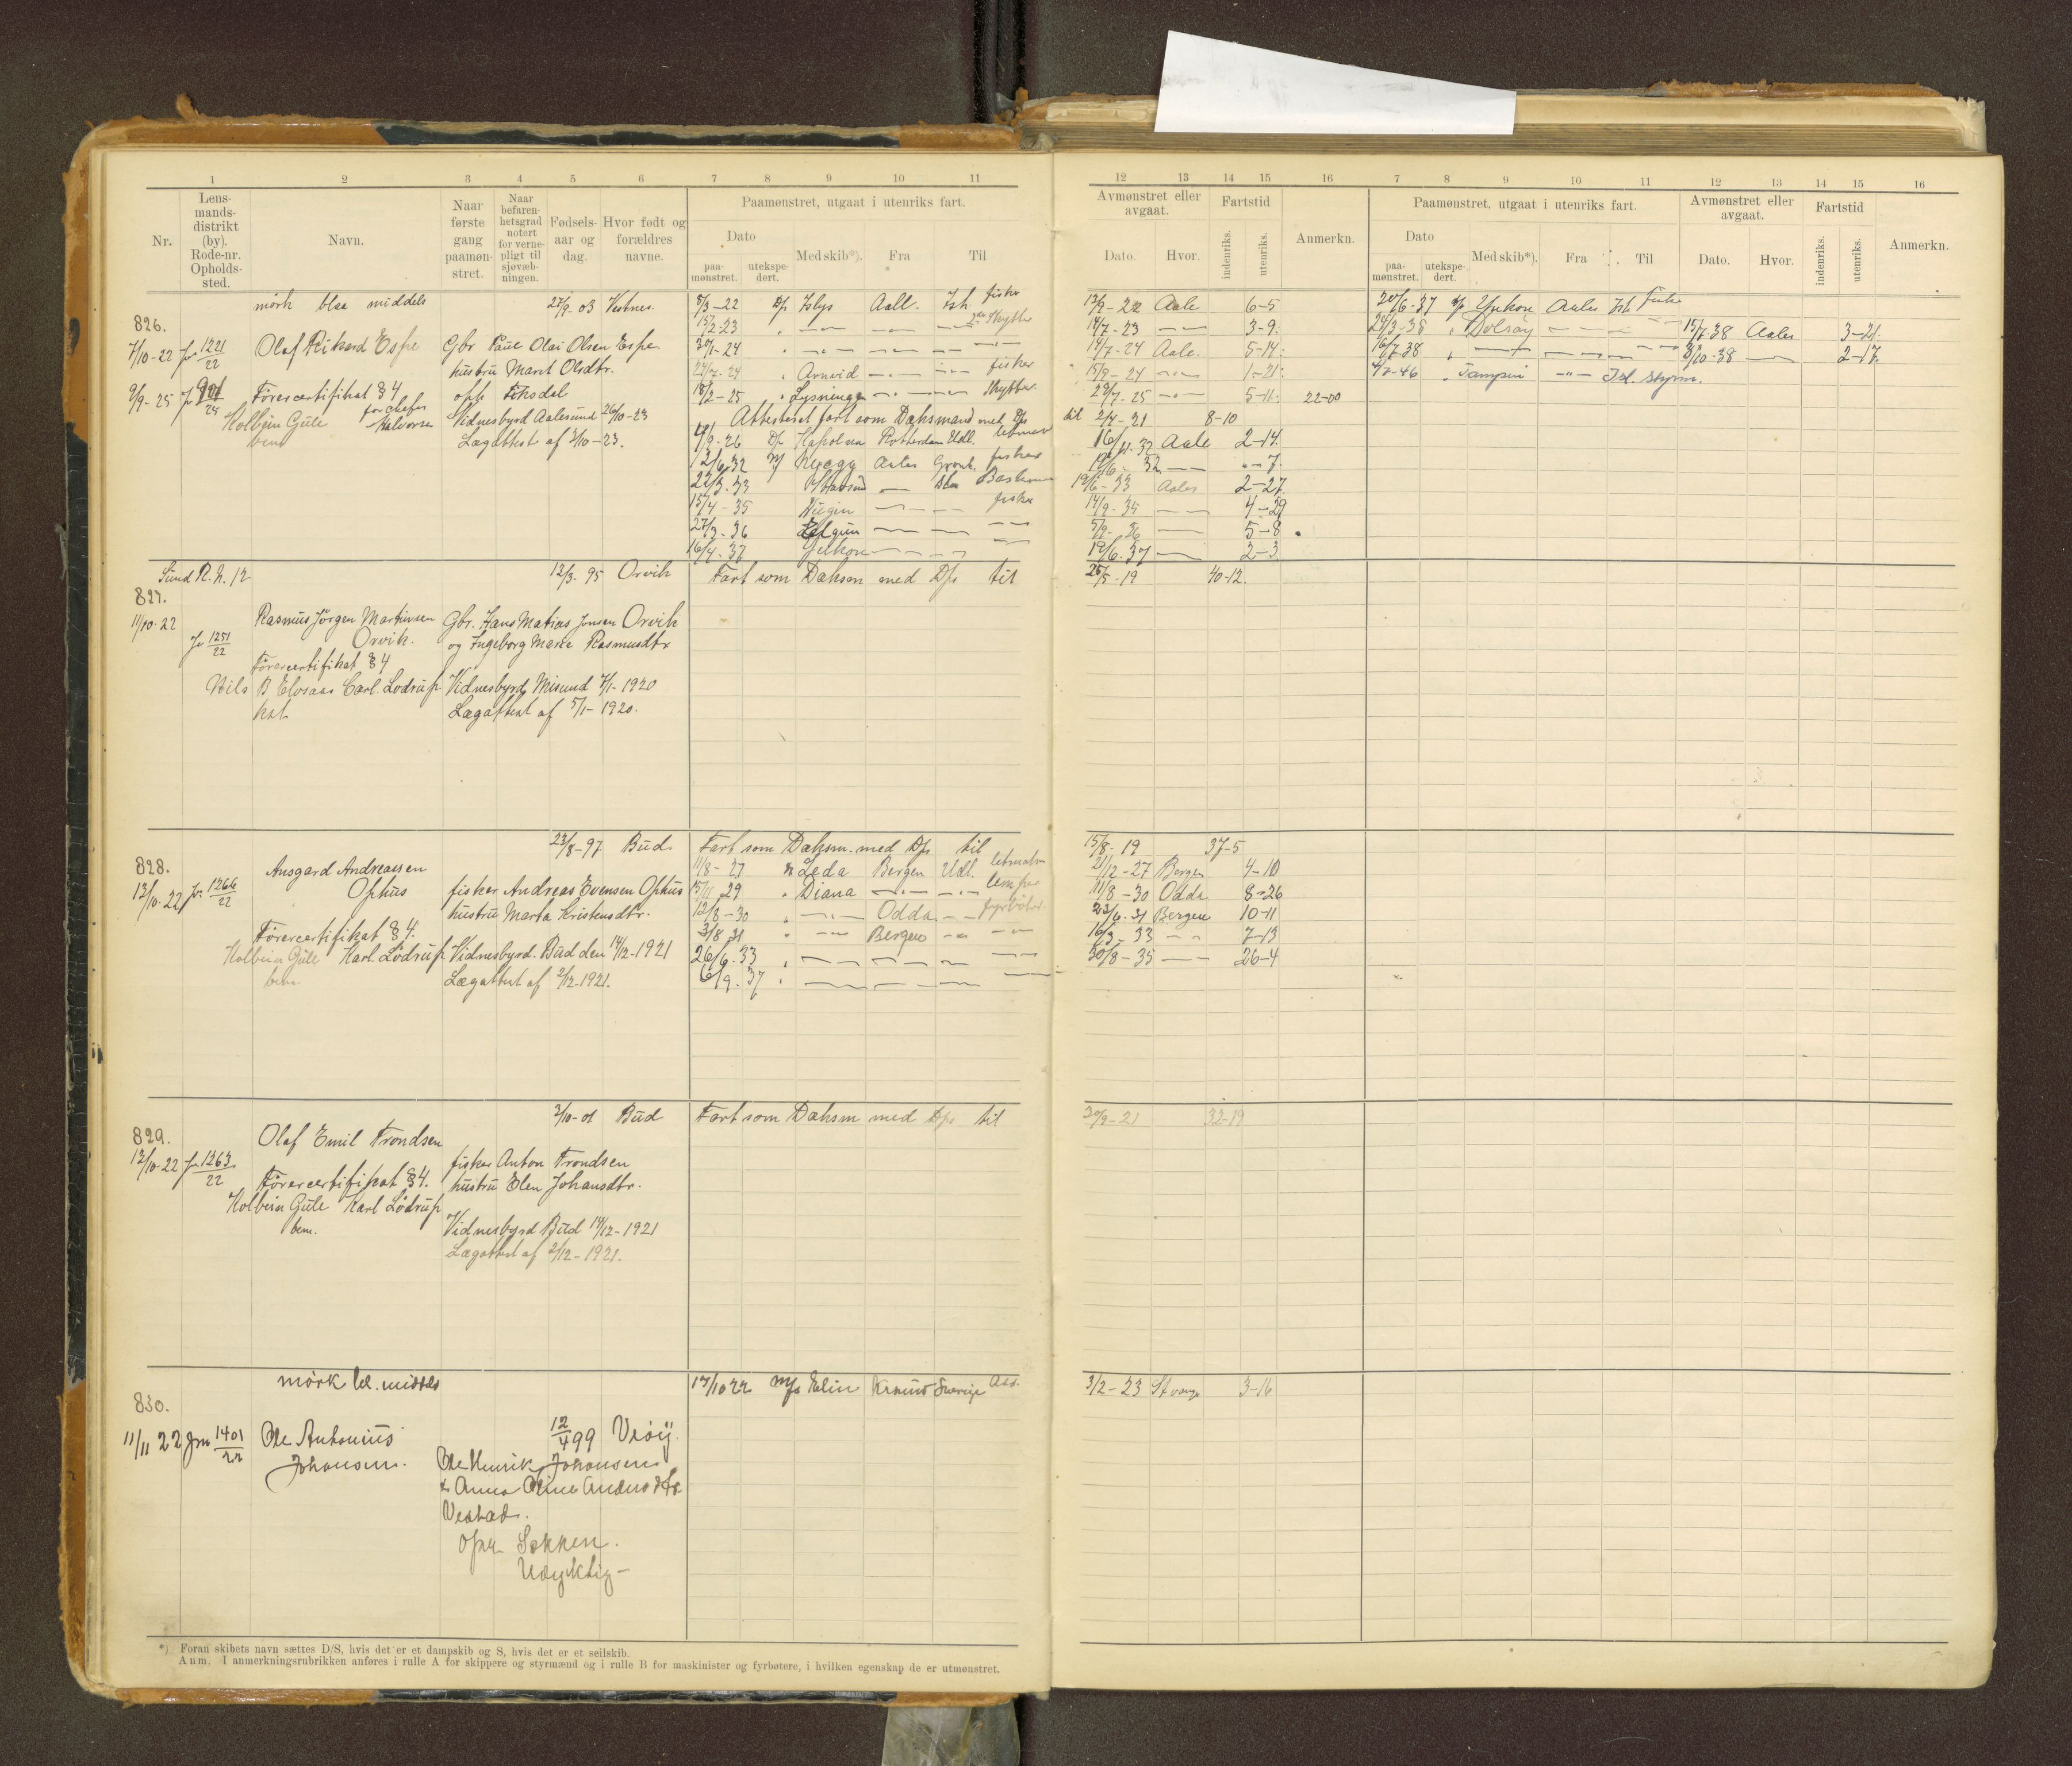 1 2 3 4 5 6 7 8 9 10 11
Nr.
Lens-
mands-
distrikt
(by).
Rode-nr.
Opholds-
sted.
Navn.
Naar
første
gang
paamøn-
stret.
Naar
befaren-
hetsgrad
notert
for verne-
pligt til
sjøvæb-
ningen.
Fødsels-
aar og
dag.
Hvor født og
forældres
navne.
Paamønstret, utgaat i utenriks fart.
Dato
paa-
mønstret.
utekspe-
dert.
Med skib*).
Fra
Til
12 13 14 15 16
Avmønstret eller
avgaat.
Dato.
Hvor.
Fartstid
indenriks.
utenriks.
Anmerkn.
7 8 9 10 11 12 13 14 15 16
Paamønstret, utgaat i utenriks fart.
Dato
paa-
mønstret.
utekspe-
dert.
Med skib*).
Fra
Til
Avmønstret eller
avgaat.
Dato.
Hvor.
Fartstid
indenriks.
utenriks.
Anmerkn.
826.
mörk blaa middels 27/9-03 Vestnes
7/10-22 Jr 1221/22 Olaf Rikard Espe Gbr Paul Olai Olsen Espe
hustru Marit Olsdtr.
9/9-25 Förercertifikat §4 oph Fiksdal
Holbein Güle Halvorsen Vidnesbyrd Aalesund 26/10-23
bem Lægattest af 3/10-23.
5/3-22 D/s Islys Aall. Ish fisker 12/9-22 Aale 6-5
15/2-23 " — — — Skytter 14/7-23 — 3-9
30/1-24 " — — — — 14/7-24 Aale. 5-14
24/7-24 " Arnvid — — fisker 15/9-24 — 1-21
18/2-25 " Lysninggen — — Skytter 29/7-25 — 5-11 22-00
Attesteret fart som Dæksmand med D/s til 2/4-21 8-10
Rotterdam Utl. letmatr 16/11-32 Aale 2-14
12/6-32 M/ Aales Grønl. fisker — 7
22/3-33 — 19/6-33 Aales 2-27
15/4-35 — — fisker 14/9-35 — 4-29
27/3-36 — — — 5/9-36 — 5-8
16/4-37 — — — 19/6-37 — 2-3
20/6-37 Yukon Aales Isl. fiske
24/3-38 " Dolsöy — — — 15/7-38 Aales 3-21
16/7-38 " — — — — 3/10-38 — 2-17
4/7-46 " — Isl. Styrm.
827.
Sund R. N. 12 12/3-95 Orvik
11/10-22 Jr 1251/22 Rasmus Jörgen Martinsen Gbr. Hans Matias Jonsen Orvik
Orvik. og Ingeborg Marie Rasmusdtr
Förercertifikat §4
Nils B Elvsaas Carl. Lödrup Vidnesbyrd Misund 7/1-1920
kst. Lægattest af 5/1-1920.
Fart som Dæksm med D/s til 25/5-19 40-12.
828.
23/8-97 Bud
13/10-22 Jr. 1266/22 Ansgard Andreassen
Ophus fisker Andreas Evensen Ophus
hustru Marta Kristensdtr.
Förercertifikat §4.
Holbein Güle Karl Lödrup Vidnesbyrd. Bud den 14/12-1921
bem Lægattest af 2/12-1921.
Fart som Dæksm. med D/s til 15/8-19 37-5
11/8-27 Leda Bergen Utl. letmatr 21/12-27 Bergen 4-10
15/11 29 " Diana — — lemper 11/8-30 Odda 8-26
12/8-30 " — Odda — fyrböter 23/6-31 Bergen 10-11
3/8 31 " — Bergen — — 16/3-33 — 7-13
26/6-33 " — — — — 30/8-35 — 26-4
6/9-37 " — — — —
829.
2/10-01 Bud
12/10-22 Jr 1263/22 Olaf Emil Trondsen
fisker Anton Trondsen
Förercertifikat §4. hustru Elen Johansdtr.
Holbein Güle Karl Lödrup
bem. Vidnesbyrd Bud 14/12-1921
Lægattest af 2/12-1921.
Fart som Dæksm med D/s til 30/9-21 32-19
830.
mörk bl. middels
11/11 22 Jrn 1401/22 Ole Antonius 12/4 99 Veöy.
Johansen. Ole Henrik Johansen
& Anna Oline Andersdtr
Vestad.
oph Sekken.
Udyktig—
17/10 22 M/s Elin Krsund Sverige 3/2-23 3-16
*) Foran skibets navn sættes D/S, hvis det er et dampskib og S, hvis det er et seilskib.
Anm. I anmerkningsrubrikken anføres i rulle A for skippere og styrmænd og i rulle B for maskinister og fyrbøtere, i hvilken egenskap de er utmønstret.